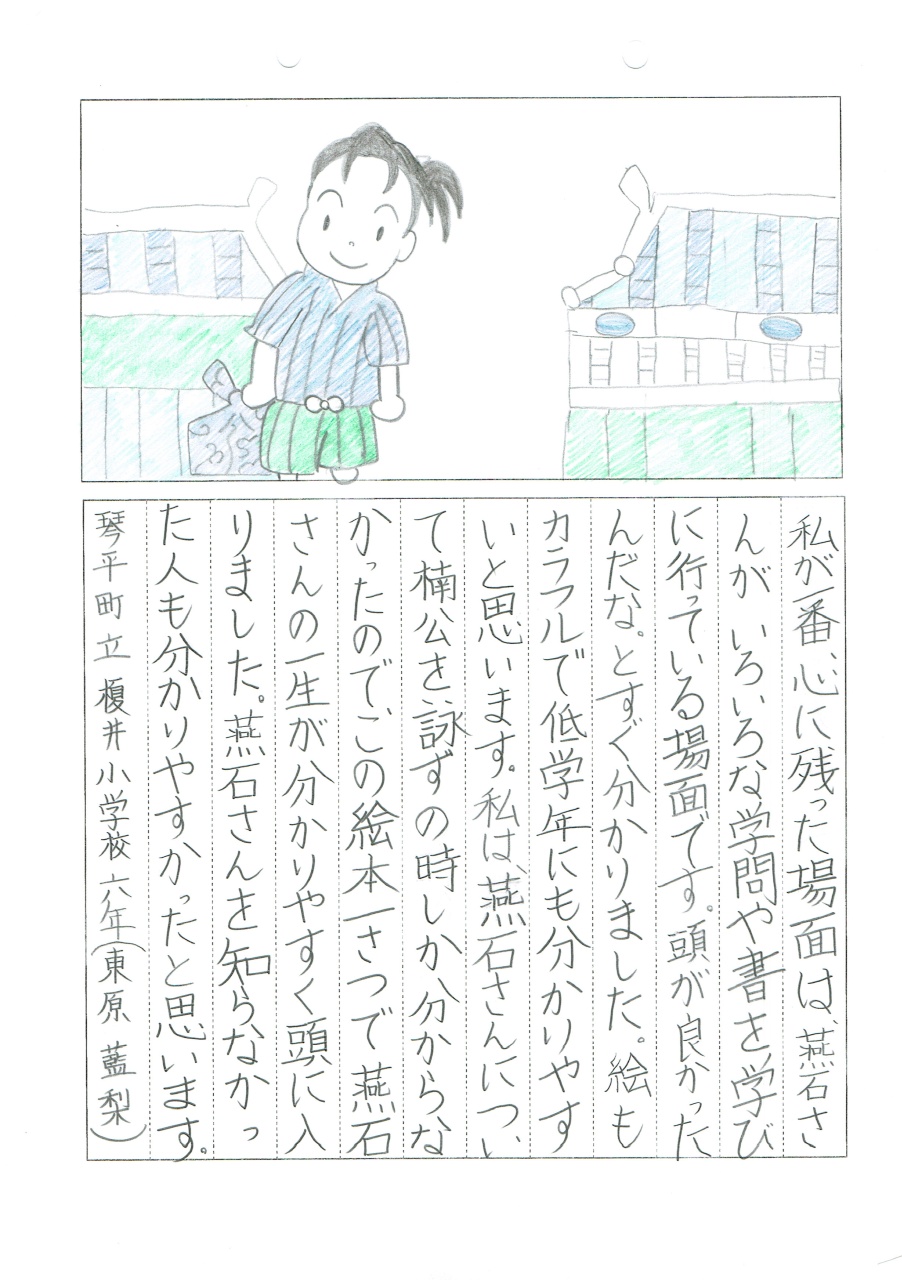 私が一番、心に残った場面は、燕石さ
んが いろいろな学問や書を学び
に行っている場面です。頭が良かった
んだな。とすぐ分かりました。絵も
カラフルで低学年にも分かりやす
いと思います。私は、燕石さんについ
て楠公を詠ずの時しか分からな
かったので、この絵本一さつで燕石
さんの一生が分かりやすく頭に入
りました。燕石さんを知らなかっ
た人も分かりやすかったと思います。
琴平町立 榎井小学校 六年(東原 藍梨)